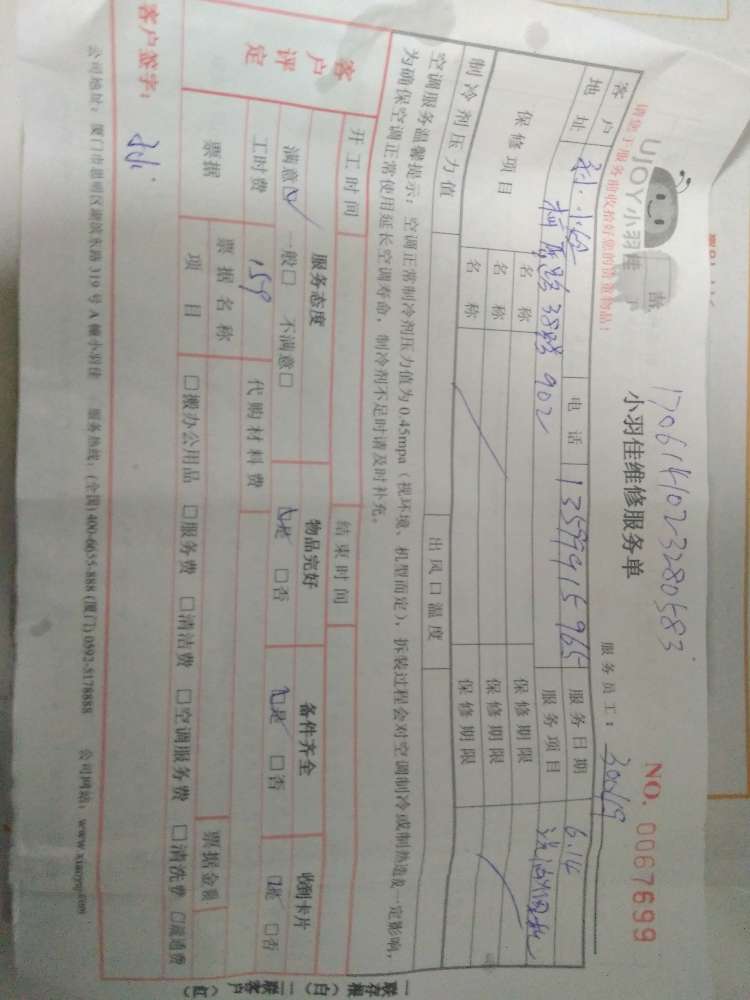 UJOY小羽佳
请您于服务前收拾好您的贵重物品！
1706141023280583
小羽佳维修服务单
NO. 0067699
服务员工：
客户
电话 13599915965
服务日期 6.14
地址 902
服务项目
保修项目
名称
保修期限
名称
保修期限
名称
保修期限
制冷剂压力值
出风口温度
空调服务温馨提示：空调正常制冷剂压力值为0.45mpa（视环境、机型而定），拆装过程会对空调制冷或制热造成一定影响，
为确保空调正常使用延长空调寿命，制冷剂不足时请及时补充。
开工时间
结束时间
客户评定
服务态度
物品完好
备件齐全
收到卡片
满意☑ 一般□ 不满意□
☑是 □否
☑是 □否
☑是 □否
工时费 159
代购材料费
票据
票据名称
票据金额
项目
□搬办公用品 □服务费 □清洁费 □空调服务费 □清洗费 □疏通费
客户签字：
公司地址：厦门市思明区湖滨东路319号A幢小羽佳 服务热线：(全国)400-6655-888 (厦门) 0592-5178888 公司网站：www.xiaoyujia.com
一联存根（白） 二联客户（红）